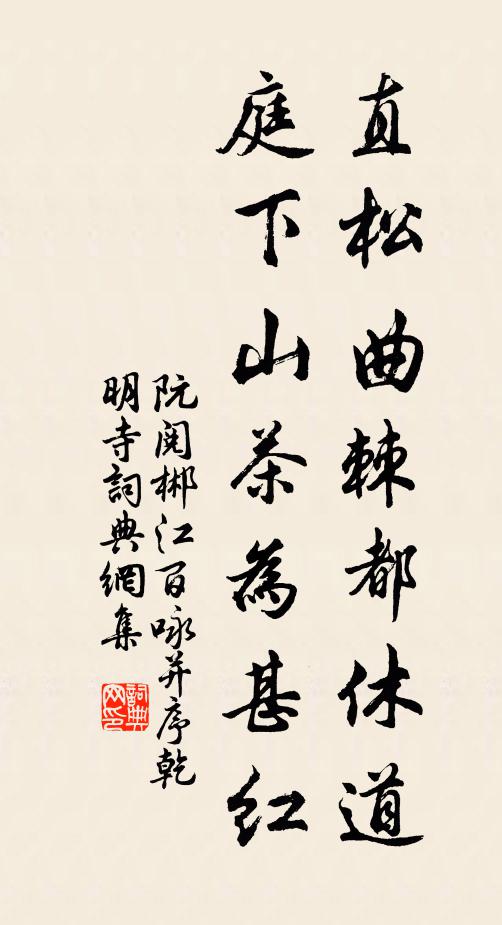 直松曲棘都休道
庭下山茶為甚紅
阮閱郴江百咏并序乾
明寺詞典網集
詞典
网印